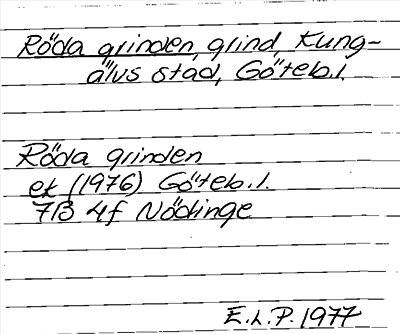 Röda grinden, grind Kung-
älvs stad, Göteb.l.
Röda grinden
ek (1976) Göteb.l.
7B 4f Nödinge
E.L.P. 1977